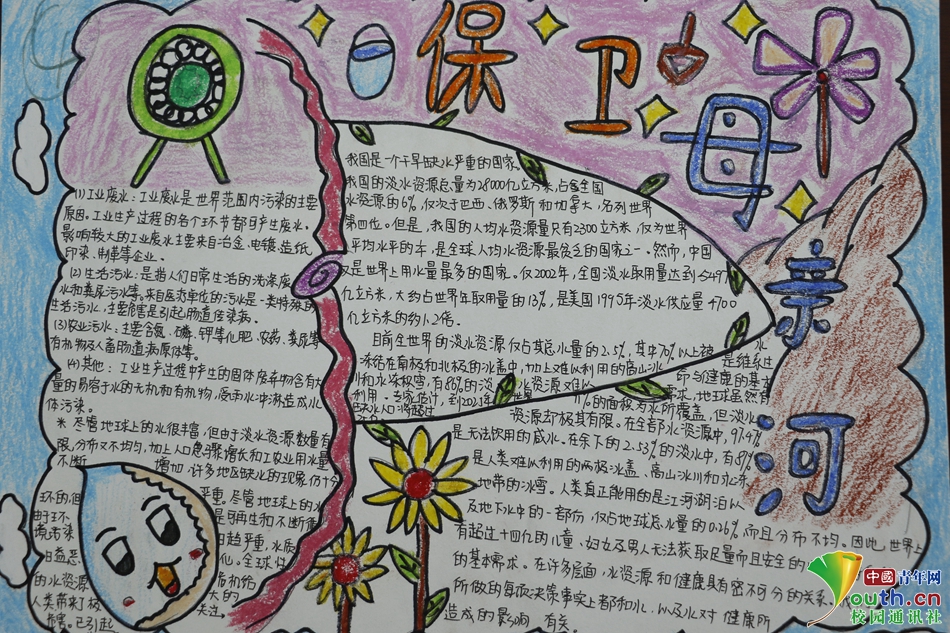 保卫母亲河
(1)工业废水：工业废水是世界范围内污染的主要
原因。工业生产过程的各个环节都可产生废水。
影响较大的工业废水主要来自冶金、电镀、造纸、
印染、制革等企业。
(2)生活污水：是指人们日常生活的洗涤废
水和粪尿污水等。来自医疗单位的污水是一类特殊的
生活污水，主要危害是引起肠道传染病。
(3)农业污水：主要含氮、磷、钾等化肥、农药、粪尿等
有机物及人畜肠道病原体等。
(4)其他：工业生产过程中产生的固体废弃物含有大
量的易溶于水的无机和有机物，受雨水冲淋造成水
体污染。
* 尽管地球上的水很丰富，但由于淡水资源数量有
限，分布又不均匀，加上人口急骤增长和工农业用水量
不断增加，许多地区缺水的现象仍十分
严重。尽管地球上的水
是可再生和不断循
环的，但
由于环
境污染
日趋严重，水质
日益恶
化。全球性
的水资源
人类带来极大的
危害。已引起
关注。
我国是一个干旱缺水严重的国家。
我国的淡水资源总量为28000亿立方米，占全国
水资源的6%，仅次于巴西、俄罗斯和加拿大，名列世界
第四位。但是，我国的人均水资源量只有2300立方米，仅为世界
平均水平的，是全球人均水资源最贫乏的国家之一。然而，中国
又是世界上用水量最多的国家。仅2002年，全国淡水取用量达到5497
亿立方米，大约占世界年取用量的13%，是美国1995年淡水供应量4700
亿立方米的约1.2倍。
目前全世界的淡水资源仅占其总水量的2.5%，其中70%以上被
冻结在南极和北极的冰盖中，加上难以利用的高山冰
川和永冻积雪，有86%的淡水资源难以
利用。专家估计，到2021年世界
缺水人口将超过
水
是维系生
命与健康的基本
需求，地球虽然有
71%的面积为水所覆盖，但淡水
资源却极其有限。在全部水资源中，97.47%
是无法饮用的咸水。在余下的2.53%的淡水中，有87%
是人类难以利用的两极冰盖、高山冰川和永冻
地带的冰雪。人类真正能用的是江河湖泊以
及地下水中的一部份，仅占地球总水量的0.26%，而且分布不均。因此，世界上
有超过十四亿的儿童、妇女及男人无法获取足量而且安全的
的基本需求。在许多层面，水资源和健康具有密不可分的关系，
所做的每项决策事实上都和水，以及水对健康所
造成的影响有关。
中国青年网
youth.cn
校园通讯社